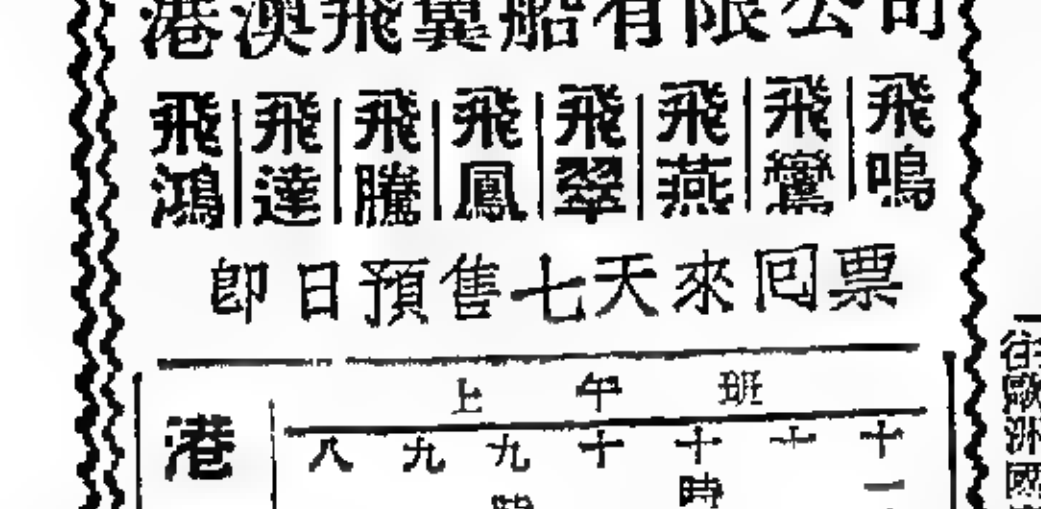 港澳飛翼船有限公司
飛鴻 飛達 飛騰 飛鳳 飛翠 飛燕 飛鸞 飛鳴
即日預售七天來回票
上午班
港 八 九 九 十 十時 十 十一
往
歐洲國